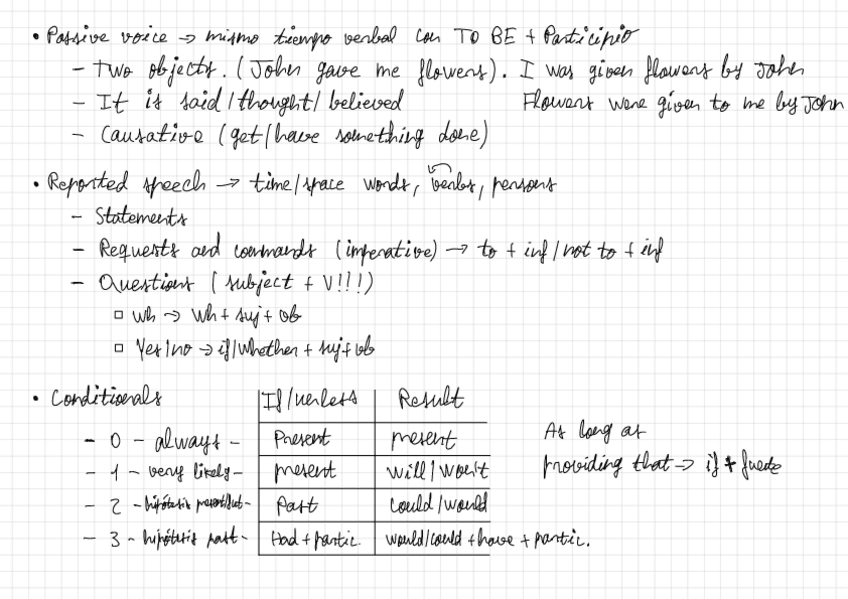 • Passive voice → mismo tiempo verbal con TO BE + Participio
– Two objects. (John gave me flowers). I was given flowers by John
– It is said/thought/believed Flowers were given to me by John
– Causative (get/have something done)
• Reported speech → time/space words, verbs, persons
– Statements
– Requests and commands (imperative) → to + inf/not to + inf
– Questions (subject + V!!!)
▫ Wh → Wh + suj + ob
▫ Yes/no → if/whether + suj + ob
• Conditionals If/unless Result
– 0 – always – Present present
– 1 – very likely – present will/won't
– 2 – hipótesis present/fut – Past could/would
– 3 – hipótesis past – Had + partic. would/could + have + partic.
As long as
providing that → if + fuerte